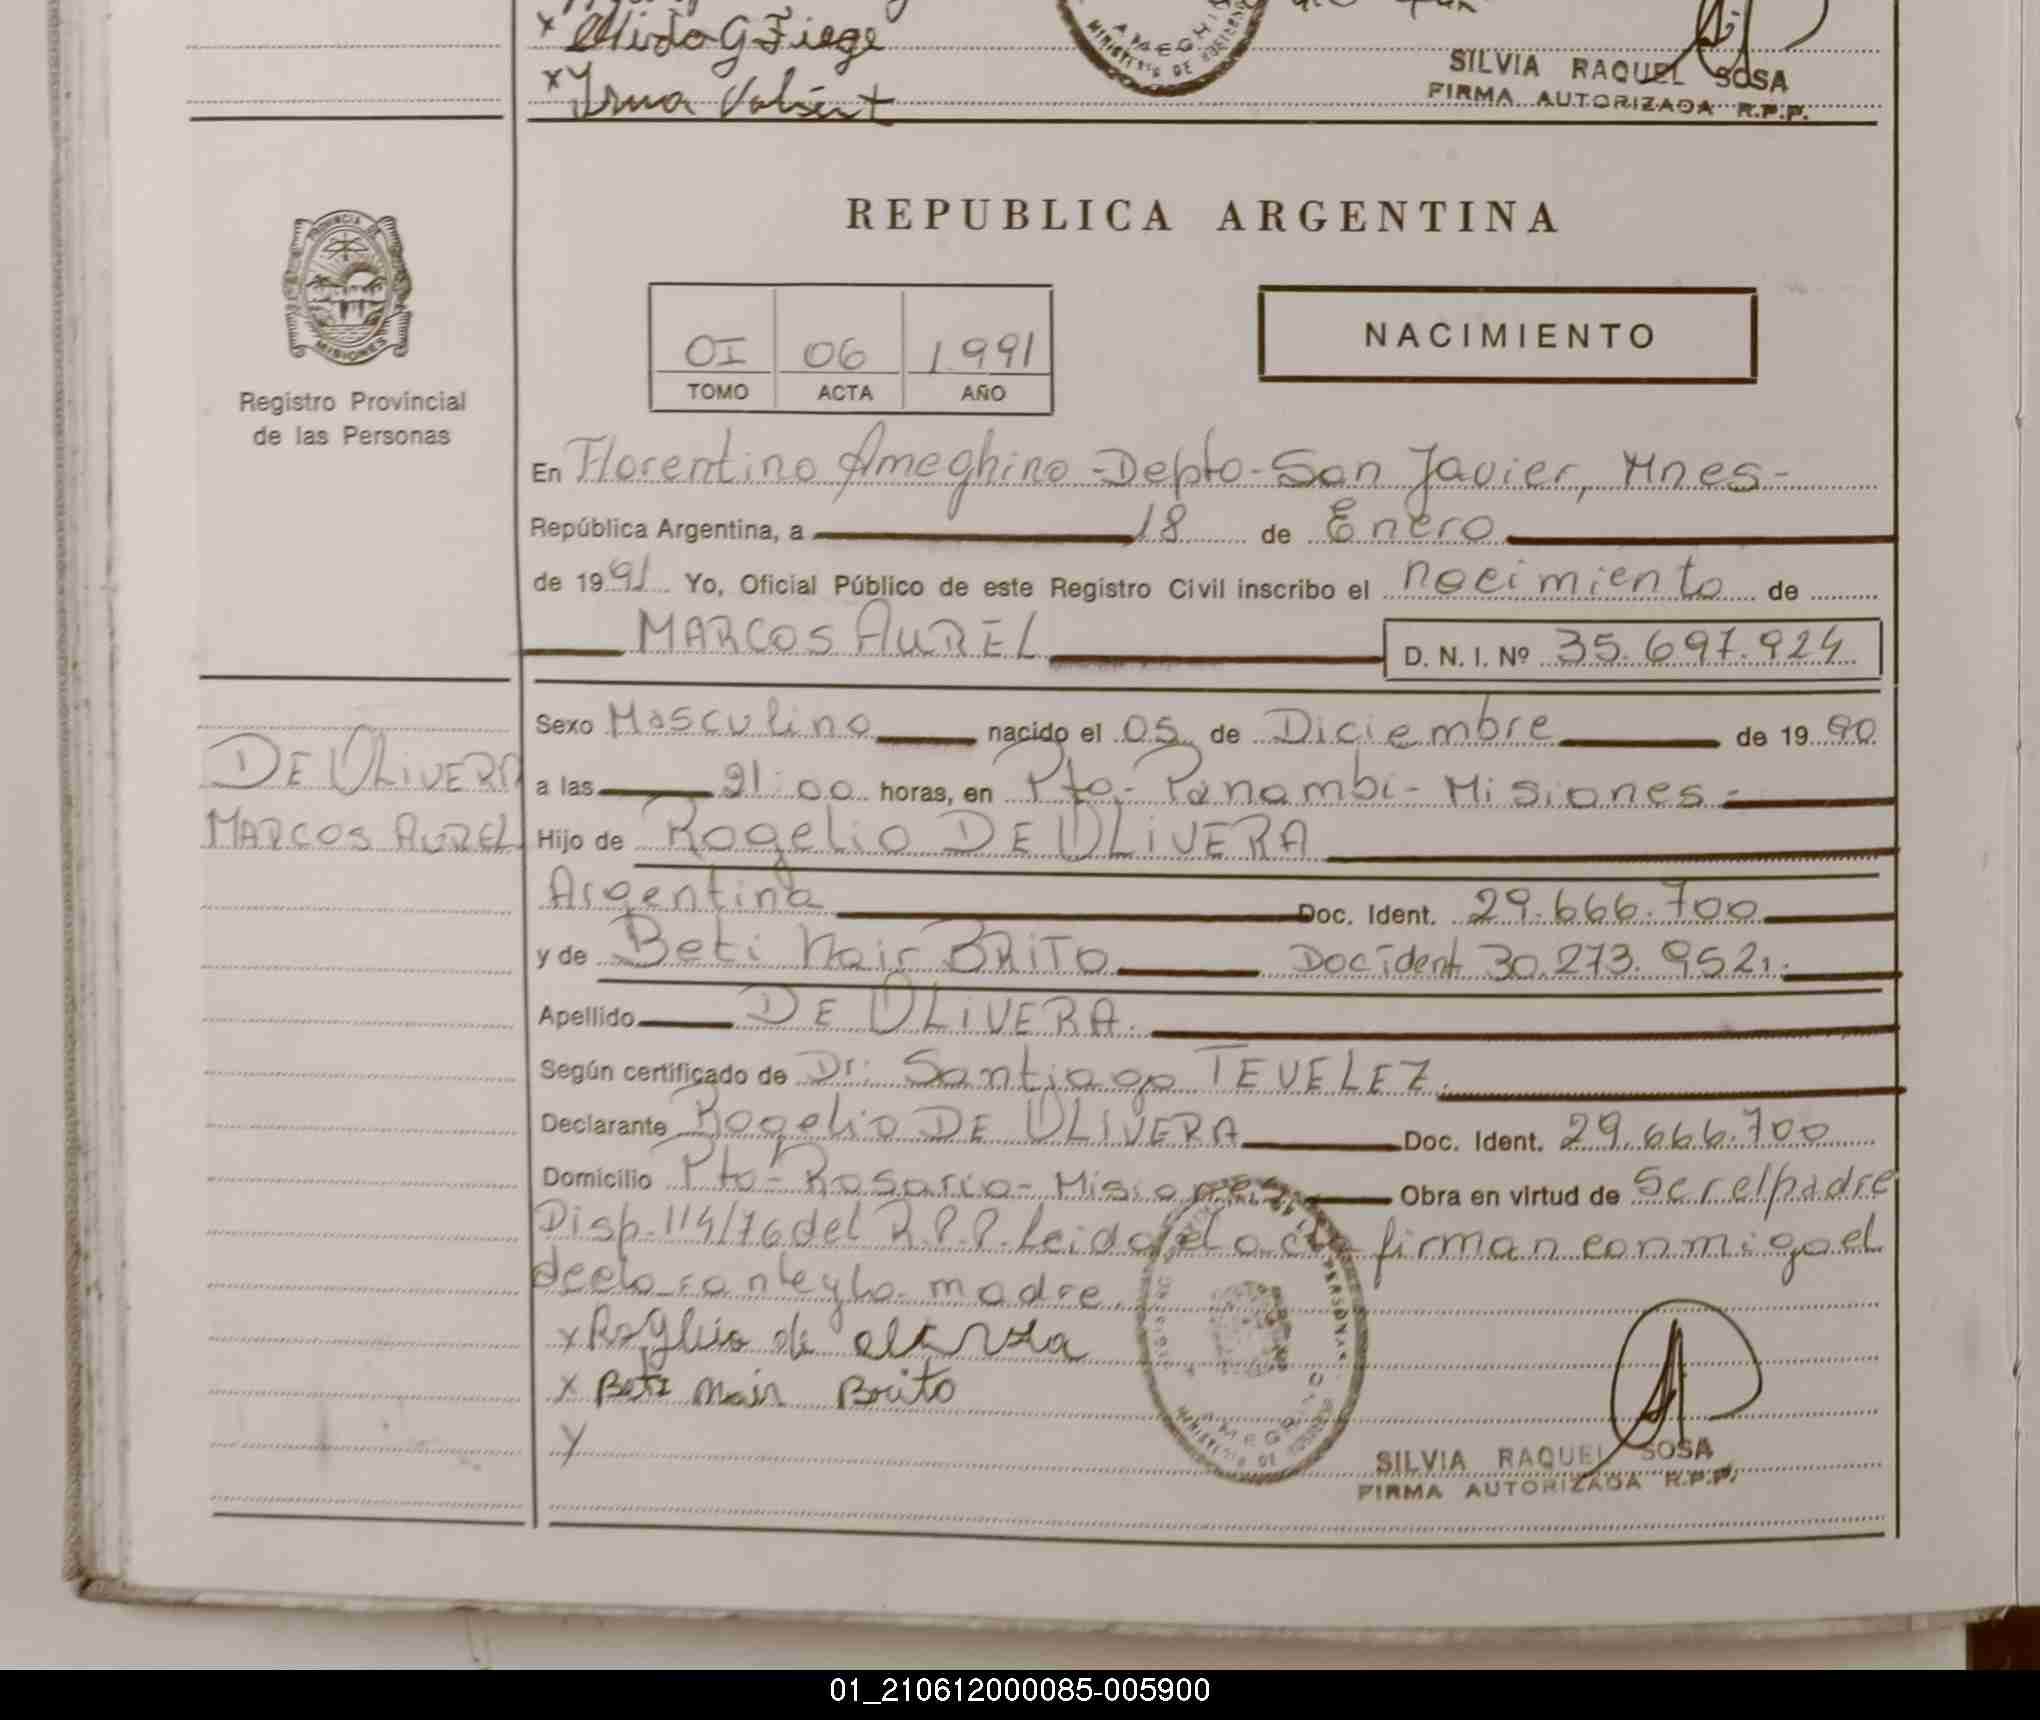 x Elida G Fiege
x Irma Valient
AMEGHINO
MINISTERIO DE GOBIERNO
SILVIA RAQUEL SOSA
FIRMA AUTORIZADA R.P.P.
PROVINCIA DE
MISIONES
Registro Provincial
de las Personas
REPUBLICA ARGENTINA
OI 06 1991
TOMO ACTA AÑO
NACIMIENTO
En Florentino Ameghino - Depto - San Javier, Mnes -
República Argentina, a 18 de Enero
de 1991 Yo, Oficial Público de este Registro Civil inscribo el nacimiento de
MARCOS AUREL D. N. I. Nº 35.697.924
DE OLIVERA
MARCOS AUREL
Sexo Masculino nacido el 05 de Diciembre de 19 90
a las 21:00 horas, en Pto. Panambi - Misiones -
Hijo de Rogelio DE OLIVERA
Argentina Doc. Ident. 29.666.700
y de Beti Nair BRITO Doc ident 30.273.952.
Apellido DE OLIVERA.
Según certificado de Dr. Santiago TEVELEZ.
Declarante Rogelio DE OLIVERA Doc. Ident. 29.666.700
Domicilio Pto - Rosario - Misiones Obra en virtud de Ser el padre
Disp. 114/76 del R.P.P. Leida el acta firman conmigo el
declarante y la madre.
x Roglio de
x Beti Nair Brito
y
AMEGHINO
SILVIA RAQUEL SOSA
FIRMA AUTORIZADA R.P.P.
01_210612000085-005900